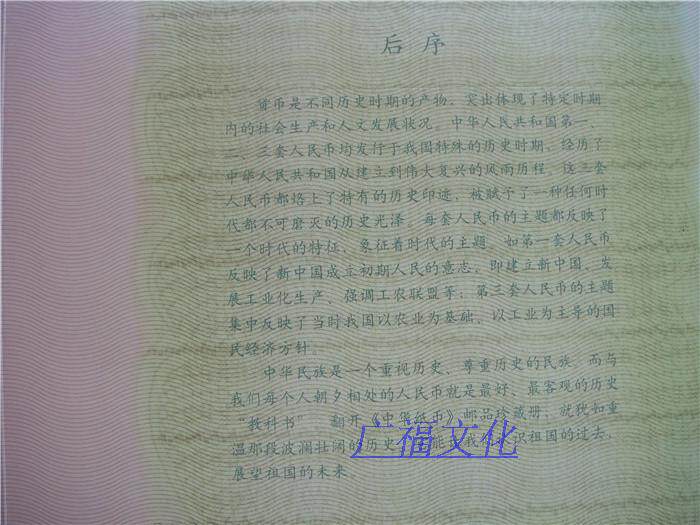 后序
货币是不同历史时期的产物，突出体现了特定时期
内的社会生产和人文发展状况。中华人民共和国第一、
二、三套人民币均发行于我国特殊的历史时期，经历了
中华人民共和国从建立到伟大复兴的风雨历程。这三套
人民币都烙上了特有的历史印迹，被赋予了一种任何时
代都不可磨灭的历史光泽。每套人民币的主题都反映了
一个时代的特征，象征着时代的主题。如第一套人民币
反映了新中国成立初期人民的意志，即建立新中国、发
展工业化生产、强调工农联盟等；第三套人民币的主题
集中反映了当时我国以农业为基础，以工业为主导的国
民经济方针。
中华民族是一个重视历史、尊重历史的民族，而与
我们每个人朝夕相处的人民币就是最好、最客观的历史
“教科书”。翻开《中华纸币》邮品珍藏册，就犹如重
温那段波澜壮阔的历史，能 我 识祖国的过去，
展望祖国的未来。
广福文化